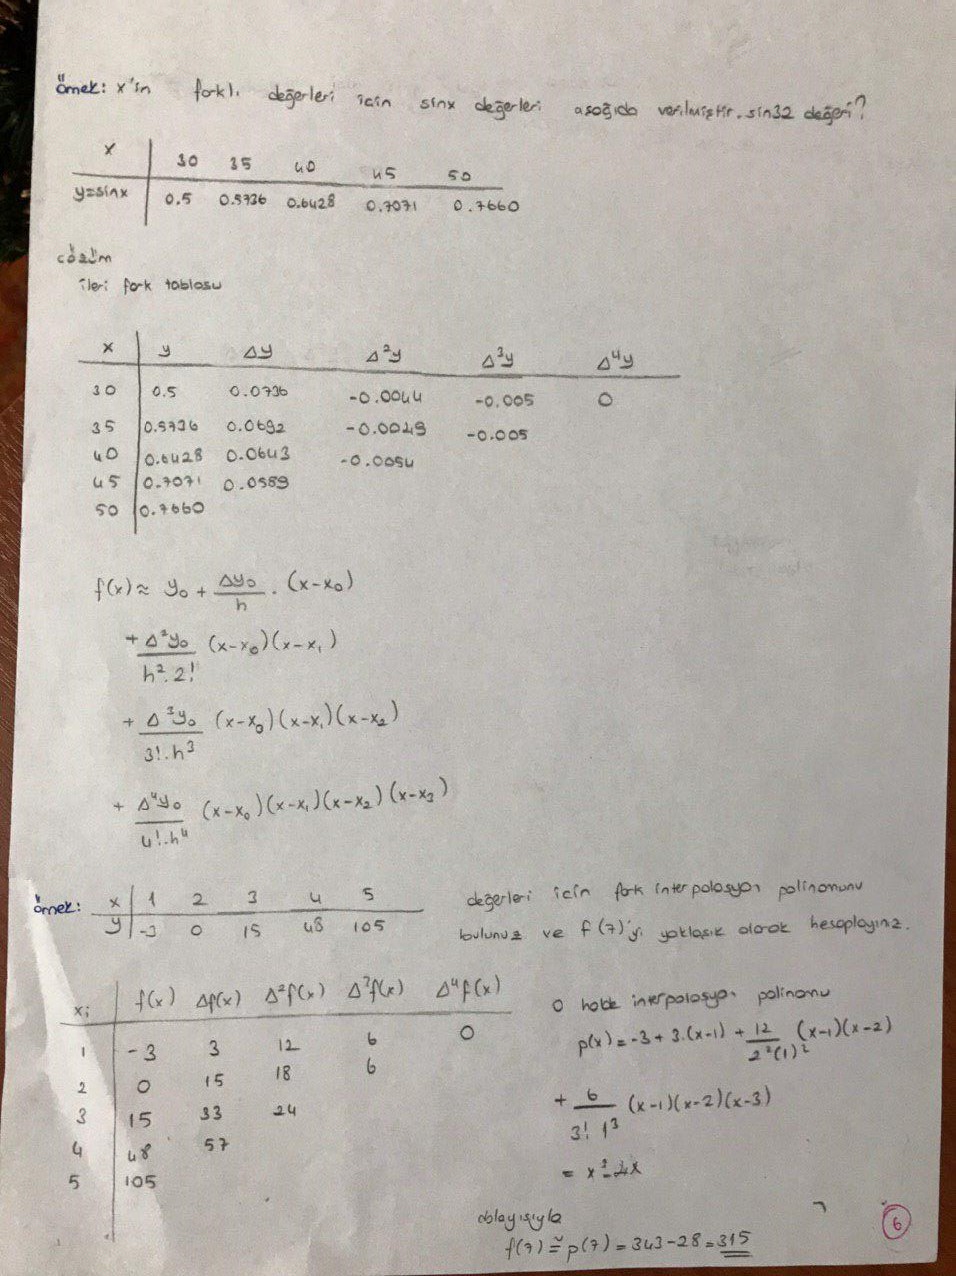 örnek: x'in farklı değerleri için sinx değerleri aşağıda verilmiştir. sin32 değeri?
x 30 35 40 45 50
y=sinx 0.5 0.5736 0.6428 0.7071 0.7660
çözüm
ileri fark tablosu
x y Δy Δ²y Δ³y Δ⁴y
30 0.5 0.0736 -0.0044 -0.005 0
35 0.5736 0.0692 -0.0049 -0.005
40 0.6428 0.0643 -0.0054
45 0.7071 0.0589
50 0.7660
f(x) ≈ y₀ + Δy₀/h . (x-x₀)
+ Δ²y₀/h².2! (x-x₀)(x-x₁)
+ Δ³y₀/3!.h³ (x-x₀)(x-x₁)(x-x₂)
+ Δ⁴y₀/4!.h⁴ (x-x₀)(x-x₁)(x-x₂)(x-x₃)
örnek: x 1 2 3 4 5
y -3 0 15 48 105
değerleri için fark interpolasyon polinomunu
bulunuz ve f(7)'yi yaklaşık olarak hesaplayınız.
xᵢ f(x) Δf(x) Δ²f(x) Δ³f(x) Δ⁴f(x)
1 -3 3 12 6 0
2 0 15 18 6
3 15 33 24
4 48 57
5 105
O halde interpolasyon polinomu
p(x) = -3 + 3.(x-1) + 12/2²(1)² (x-1)(x-2)
+ 6/3! 1³ (x-1)(x-2)(x-3)
= x³-4x
dolayısıyla
f(7) ≅ p(7) = 343-28 = 315
6